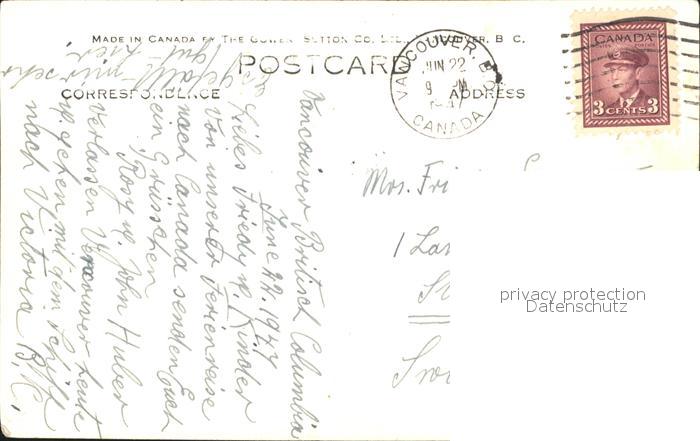 MADE IN CANADA BY THE GOWEN SUTTON CO. LTD., VANCOUVER, B. C.
POSTCARD
CORRESPONDENCE
ADDRESS
VANCOUVER B.C.
JUN 22
9 PM
1947
CANADA
CANADA
POSTES POSTAGE
3 CENTS 3
Vancouver British Columbia
June 22. 1947
Liebes Friedy u. Kinder
Von unserer Ferienreise
nach Canada senden Euch
ein Grüsschen
Rosy u. John Huber
verlassen Vancouver heute
u. gehen mit dem Schiff
nach Victoria B.C.
Es gefällt mir sehr
gut hier
Mrs. Fri
1 Las
St
privacy protection
Datenschutz